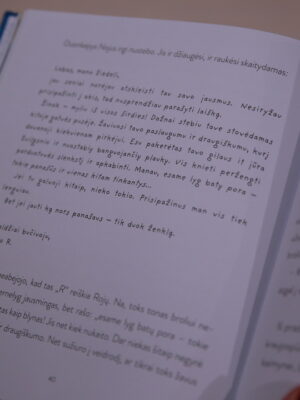 Nojus ngi nustebo. Ja ir džiaugėsi, ir raukėsi skaitydamas:
Labas, mano žiedeli,
jau seniai norėjau atskleisti tau savo jausmus. Nesiryžau
prisipažinti į akis, tad nusprendžiau parašyti laišką.
Žinok – myliu iš visos širdies! Dažnai stebiu tave stovėdamas
kitoje gatvės pusėje. Žaviuosi tavo paslaugumu ir draugiškumu, kurį
dovanoji kiekvienam pirkėjui. Esu pakerėtas tavo gilaus it jūra
žvilgsnio ir nuostabių banguojančių plaukų. Vis knieti peržengti
parduotuvės slenkstį ir apkabinti. Manau, esame lyg batų pora –
tokie panašūs ir vienas kitam tinkantys...
Jei tu galvoji kitaip, nieko tokio. Prisipažinus man vis tiek
lengviau.
Bet jei jauti ką nors panašaus – tik duok ženklą.
bučiuoju,
R.
kad tas „R“ reiškia Rojų. Na, toks tonas broliui ne-
javamingas, bet rašo: „esame lyg batų pora – tokie
kaip blynas! Jis net kiek nukaito. Dar niekas šitaip negyrė
ir draugiškumo. Net sužiuro į veidrodį, ar tikrai toks žavus
40